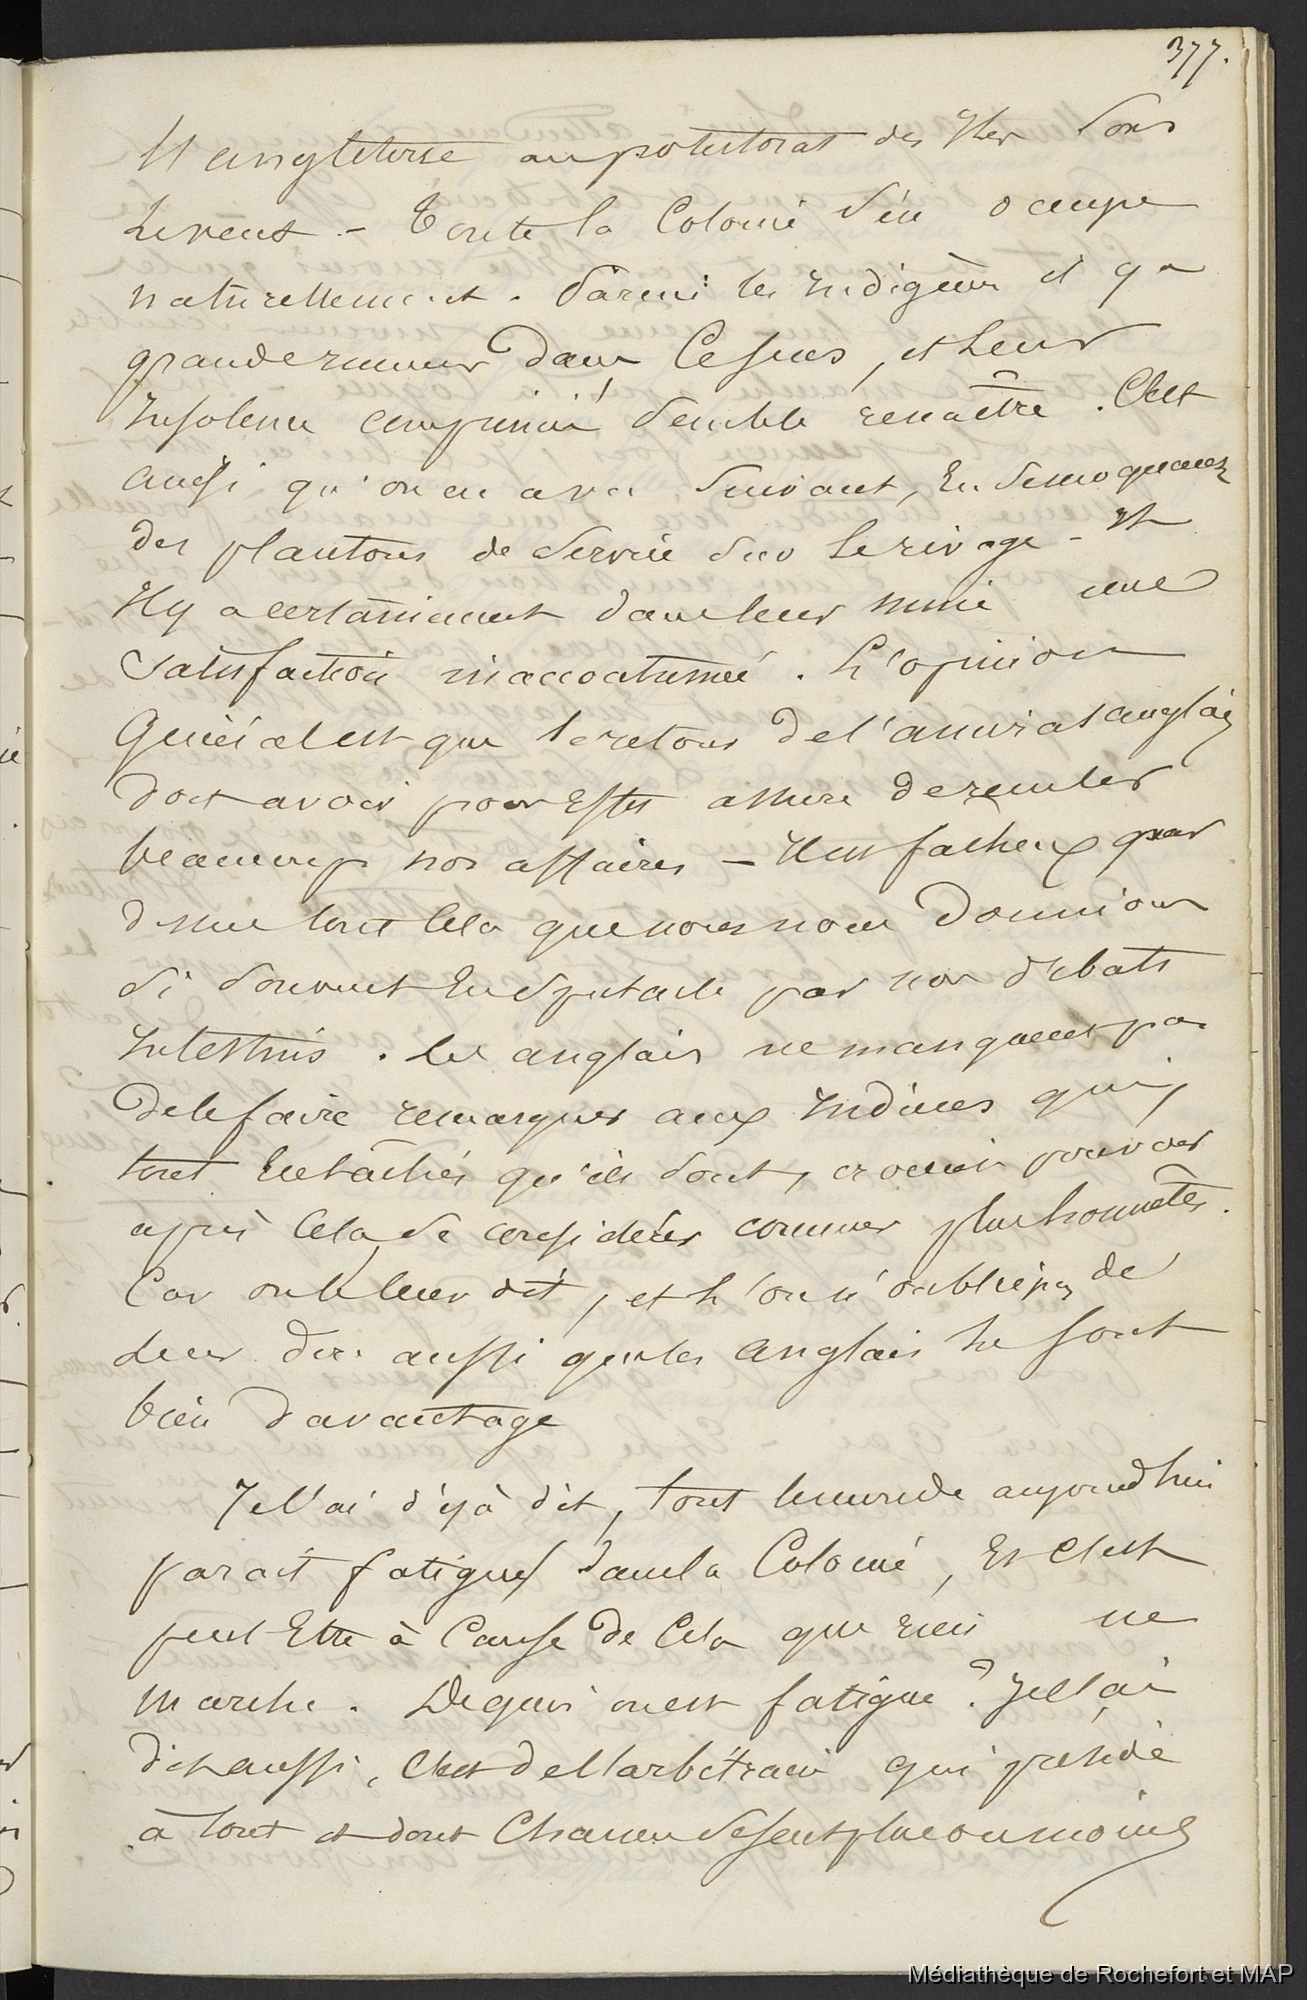 377.
l'angleterre au protectorat des Iles Sous
Le vent – Toute la Colonie s'en occupe
naturellement. Parmi les Indigènes il y a
grande rumeur dans Ce sens, et Leur
Insolence comprimée semble renaître. C'est
ainsi qu'on en a vu suivant, En se moquant
des plantons de Service sur le rivage – Et
Il y a certainement dans leur mine une
satisfaction inaccoutumée. L'opinion
Générale est que le retour de l'amiral anglais
doit avoir pour Effet assuré de reculer
beaucoup nos affaires – Il est facheux par
dessus tout Cela que nous nous donnions
si souvent En Spectacle par nos débats
Intestins. Les anglais ne manquent pas
de le faire remarquer aux Indiens qui,
tout Entachés qu'ils sont, croient pouvoir
après Cela se considérer comme plus honnêtes.
Car on le leur dit, et L'on n'oublie pas de
Leur dire aussi que les Anglais le sont
bien davantage
Je l'ai déjà dit, tout le monde aujourd'hui
parait fatigué dans la Colonie, Et C'est
peut Etre à Cause de Cela que rien ne
marche. De quoi on est fatigué? Je l'ai
dit aussi, C'est de l'arbitraire qui préside
à tout et dont Chacun se sent plus ou moins
Médiathèque de Rochefort et MAP